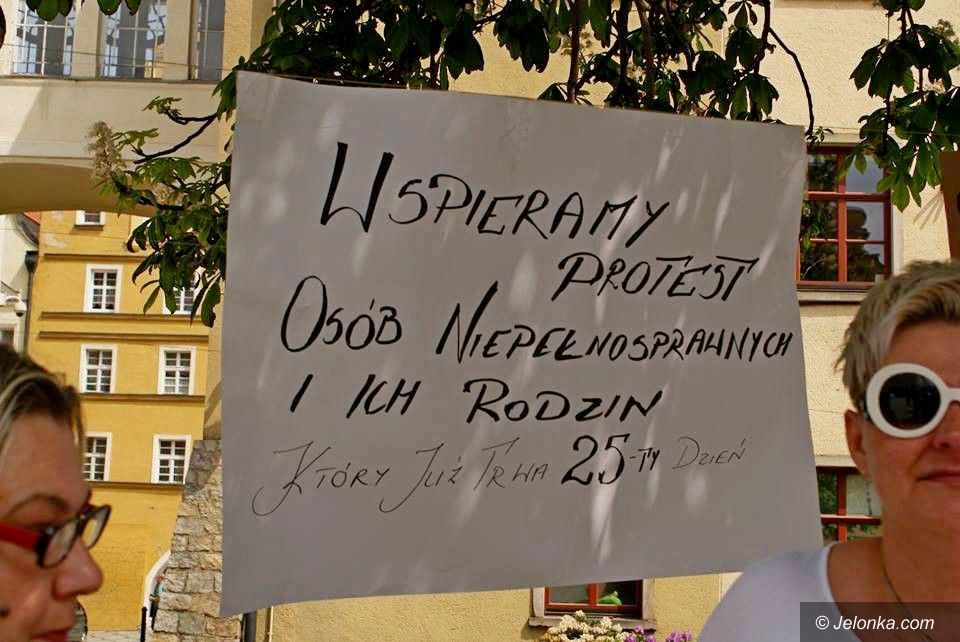 WSPIERAMY
PROTEST
OSÓB NIEPEŁNOSPRAWNYCH
I ICH RODZIN
KTÓRY JUŻ TRWA 25-TY DZIEŃ
© Jelonka.com